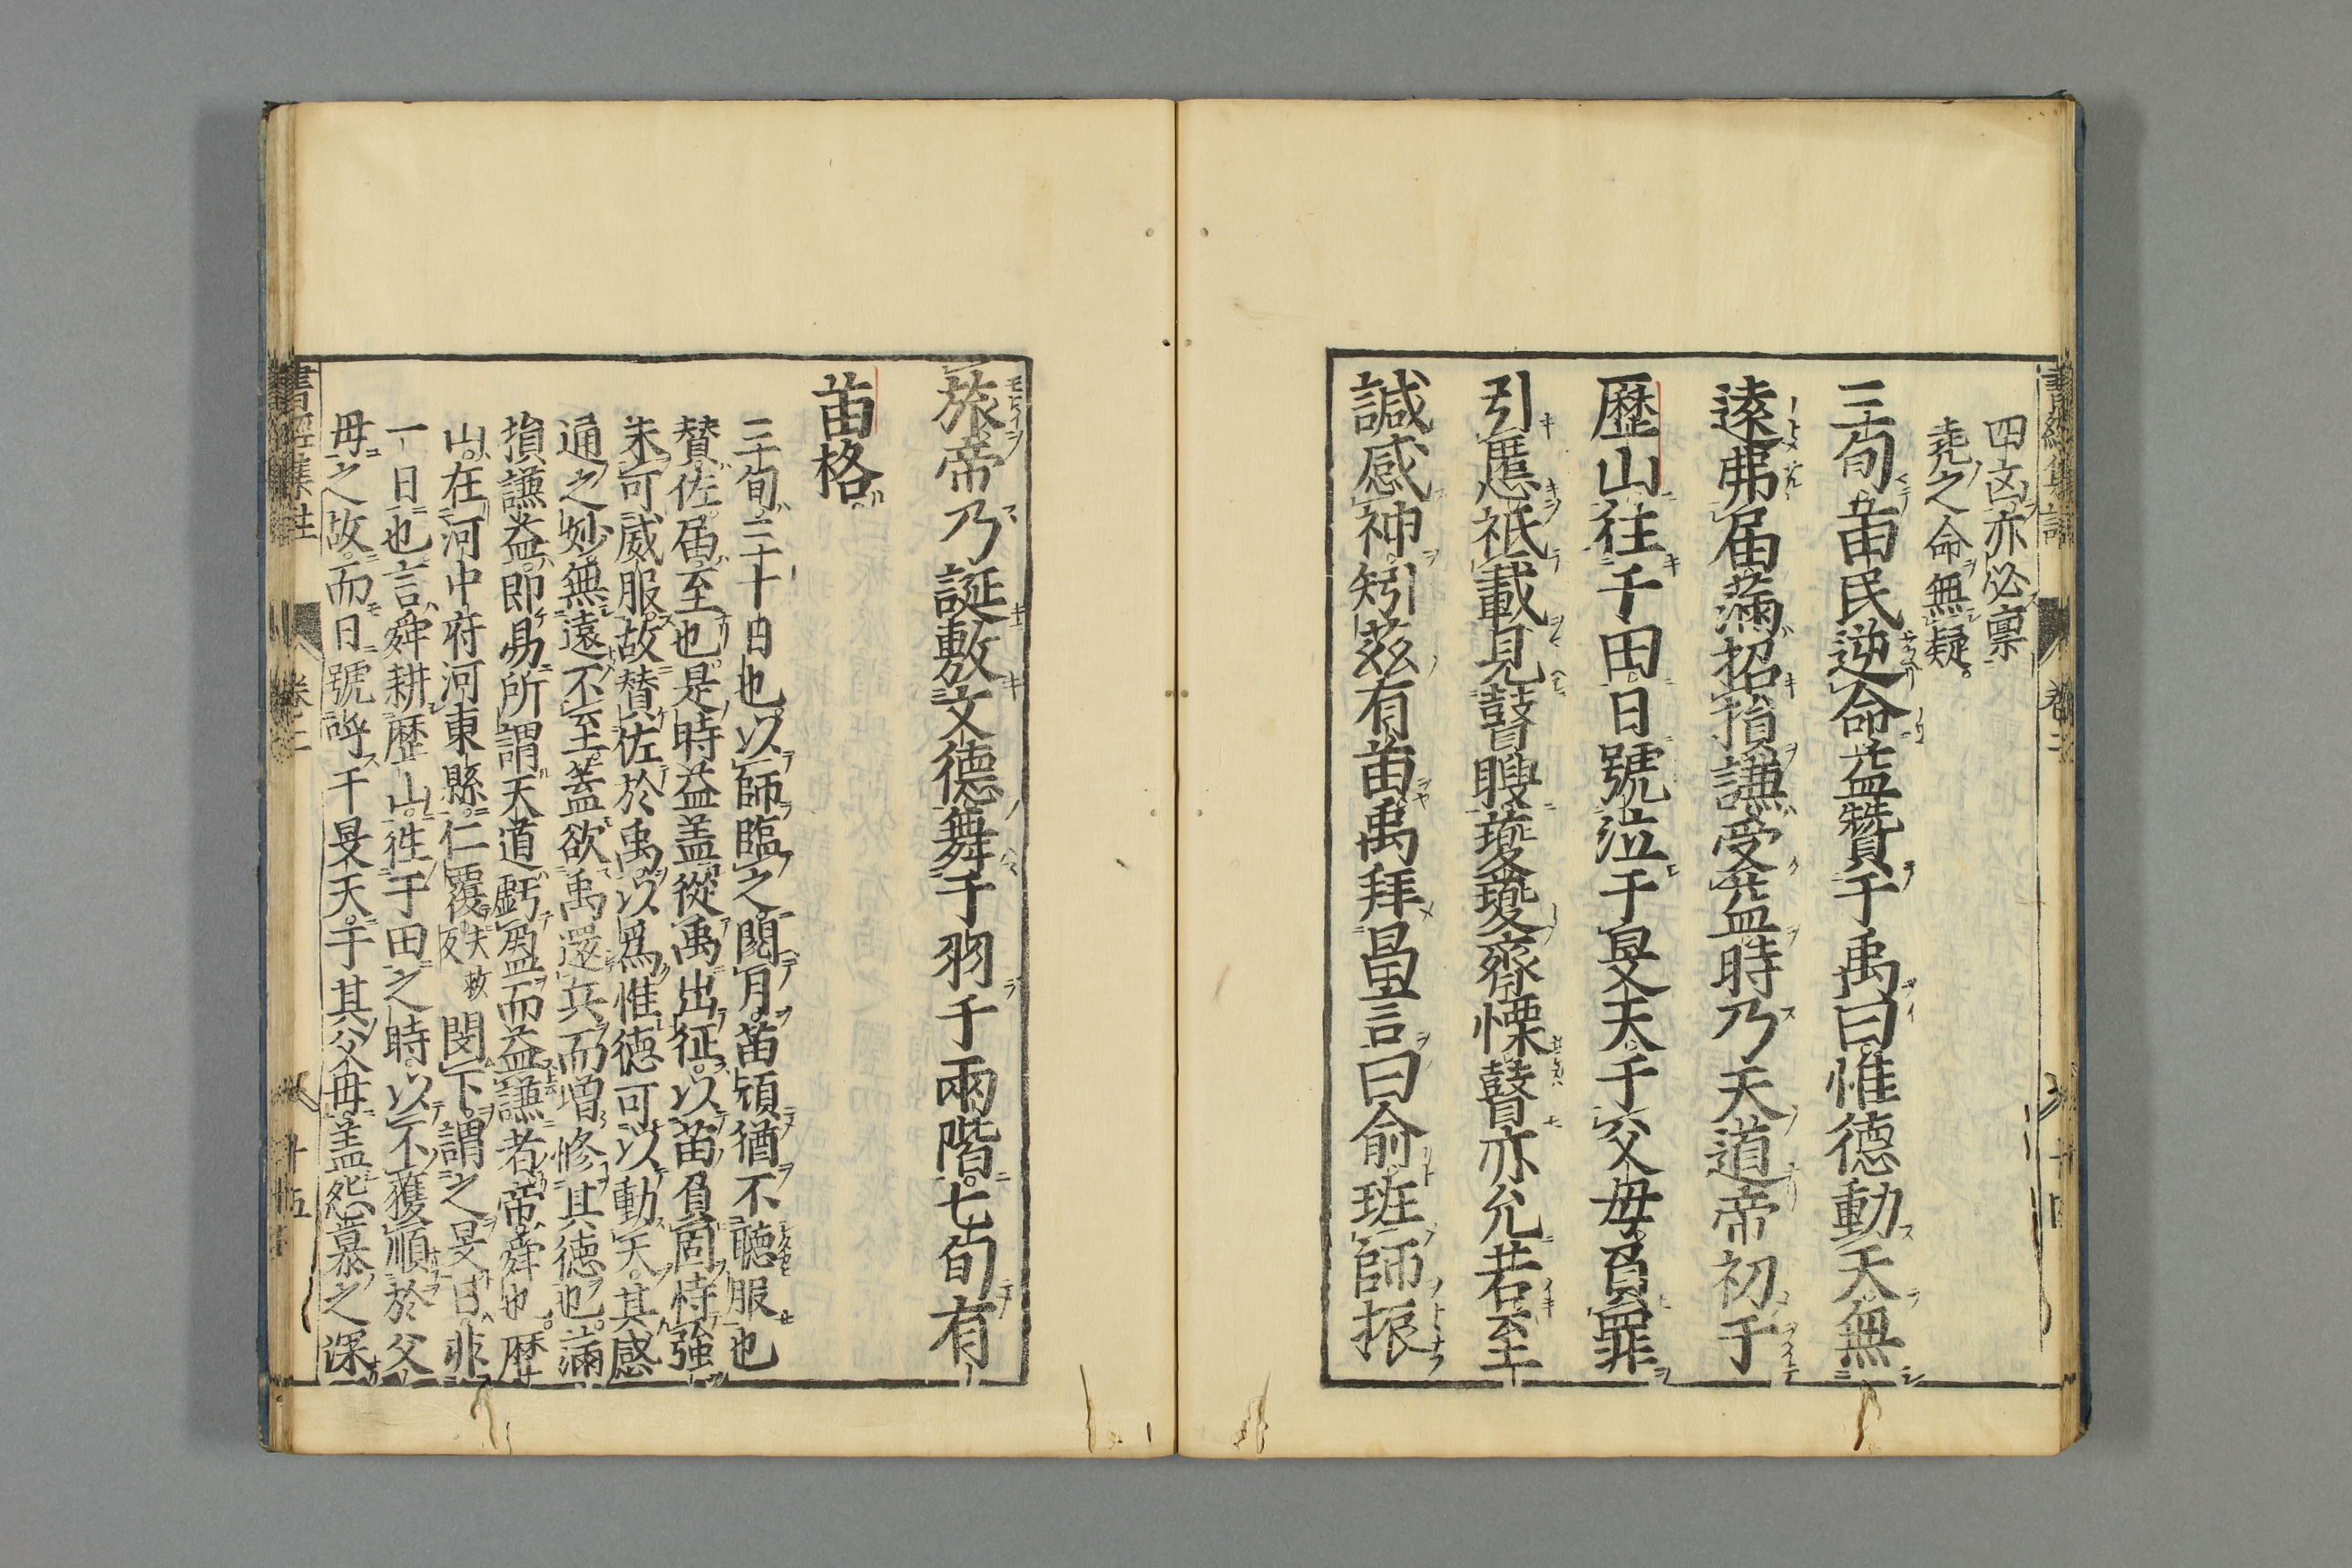 四凶亦必禀
堯之命無疑。
三旬苗民逆命益贊于禹曰惟德動天無
遠弗届滿招損謙受益時乃天道帝初于
歷山往于田日號泣于旻天于父母負罪
引慝祗載見瞽瞍夔夔齋慄瞽亦允若至
諴感神矧茲有苗禹拜昌言曰俞班師振
旅帝乃誕敷文德舞干羽于兩階七旬有
苗格
三旬三十日也以師臨之閱月苗頑猶不聽服也
贊佐届至也是時益盖從禹出征以苗負固恃強
未可威服故贊佐於禹以爲惟德可以動天其感
通之妙無遠不至盖欲禹還兵而增修其德也滿
損謙益即易所謂天道虧盈而益謙者帝舜也歷
山在河中府河東縣仁覆夫救反閔下謂之旻日非
一日也言舜耕歷山往于田之時以不獲順於父
母之故而日號呼于旻天于其父母盖怨慕之深
書經集註 卷二 十五